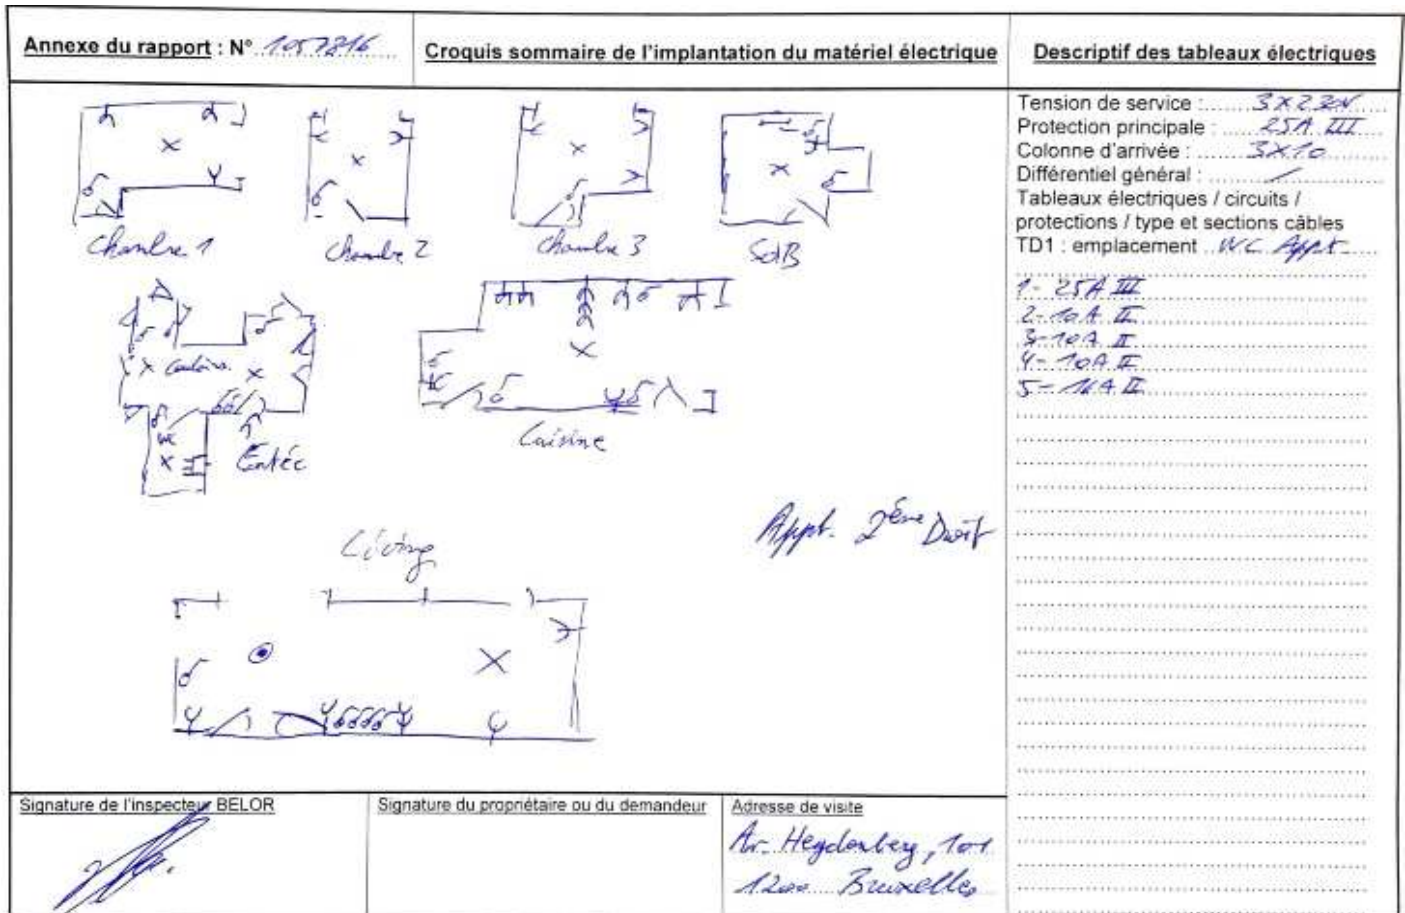 Annexe du rapport : N° 1057816
Croquis sommaire de l'implantation du matériel électrique
Descriptif des tableaux électriques
Chambre 1
Chambre 2
Chambre 3
SdB
Couloirs.
WC
Entrée
Cuisine
Appt. 2ème Droit
Living
Tension de service : 3x230V
Protection principale : 25A III
Colonne d'arrivée : 3x10
Différentiel général : /
Tableaux électriques / circuits /
protections / type et sections câbles
TD1 : emplacement WC Appt
1- 25A III
2- 10A II
3- 10A II
4- 10A II
5- 16A II
Signature de l'inspecteur BELOR
Signature du propriétaire ou du demandeur
Adresse de visite
Av. Heydenberg, 101
1200 Bruxelles